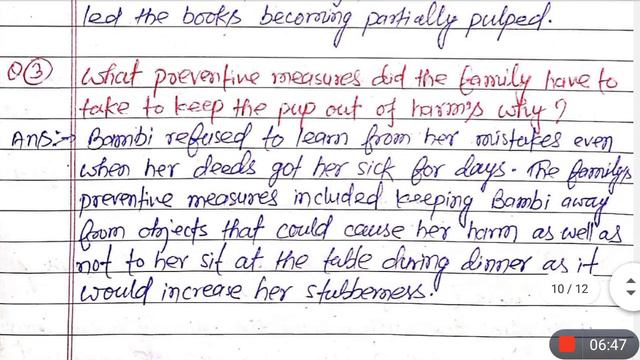 led the books becoming partially pulped.
Q③ What preventive measures did the family have to
take to keep the pup out of harm's why?
Ans:→ Bambi refused to learn from her mistakes even
when her deeds got her sick for days. The family's
preventive measures included keeping Bambi away
from objects that could cause her harm as well as
not to her sit at the table during dinner as it
would increase her stubberness.
10 / 12
06:47